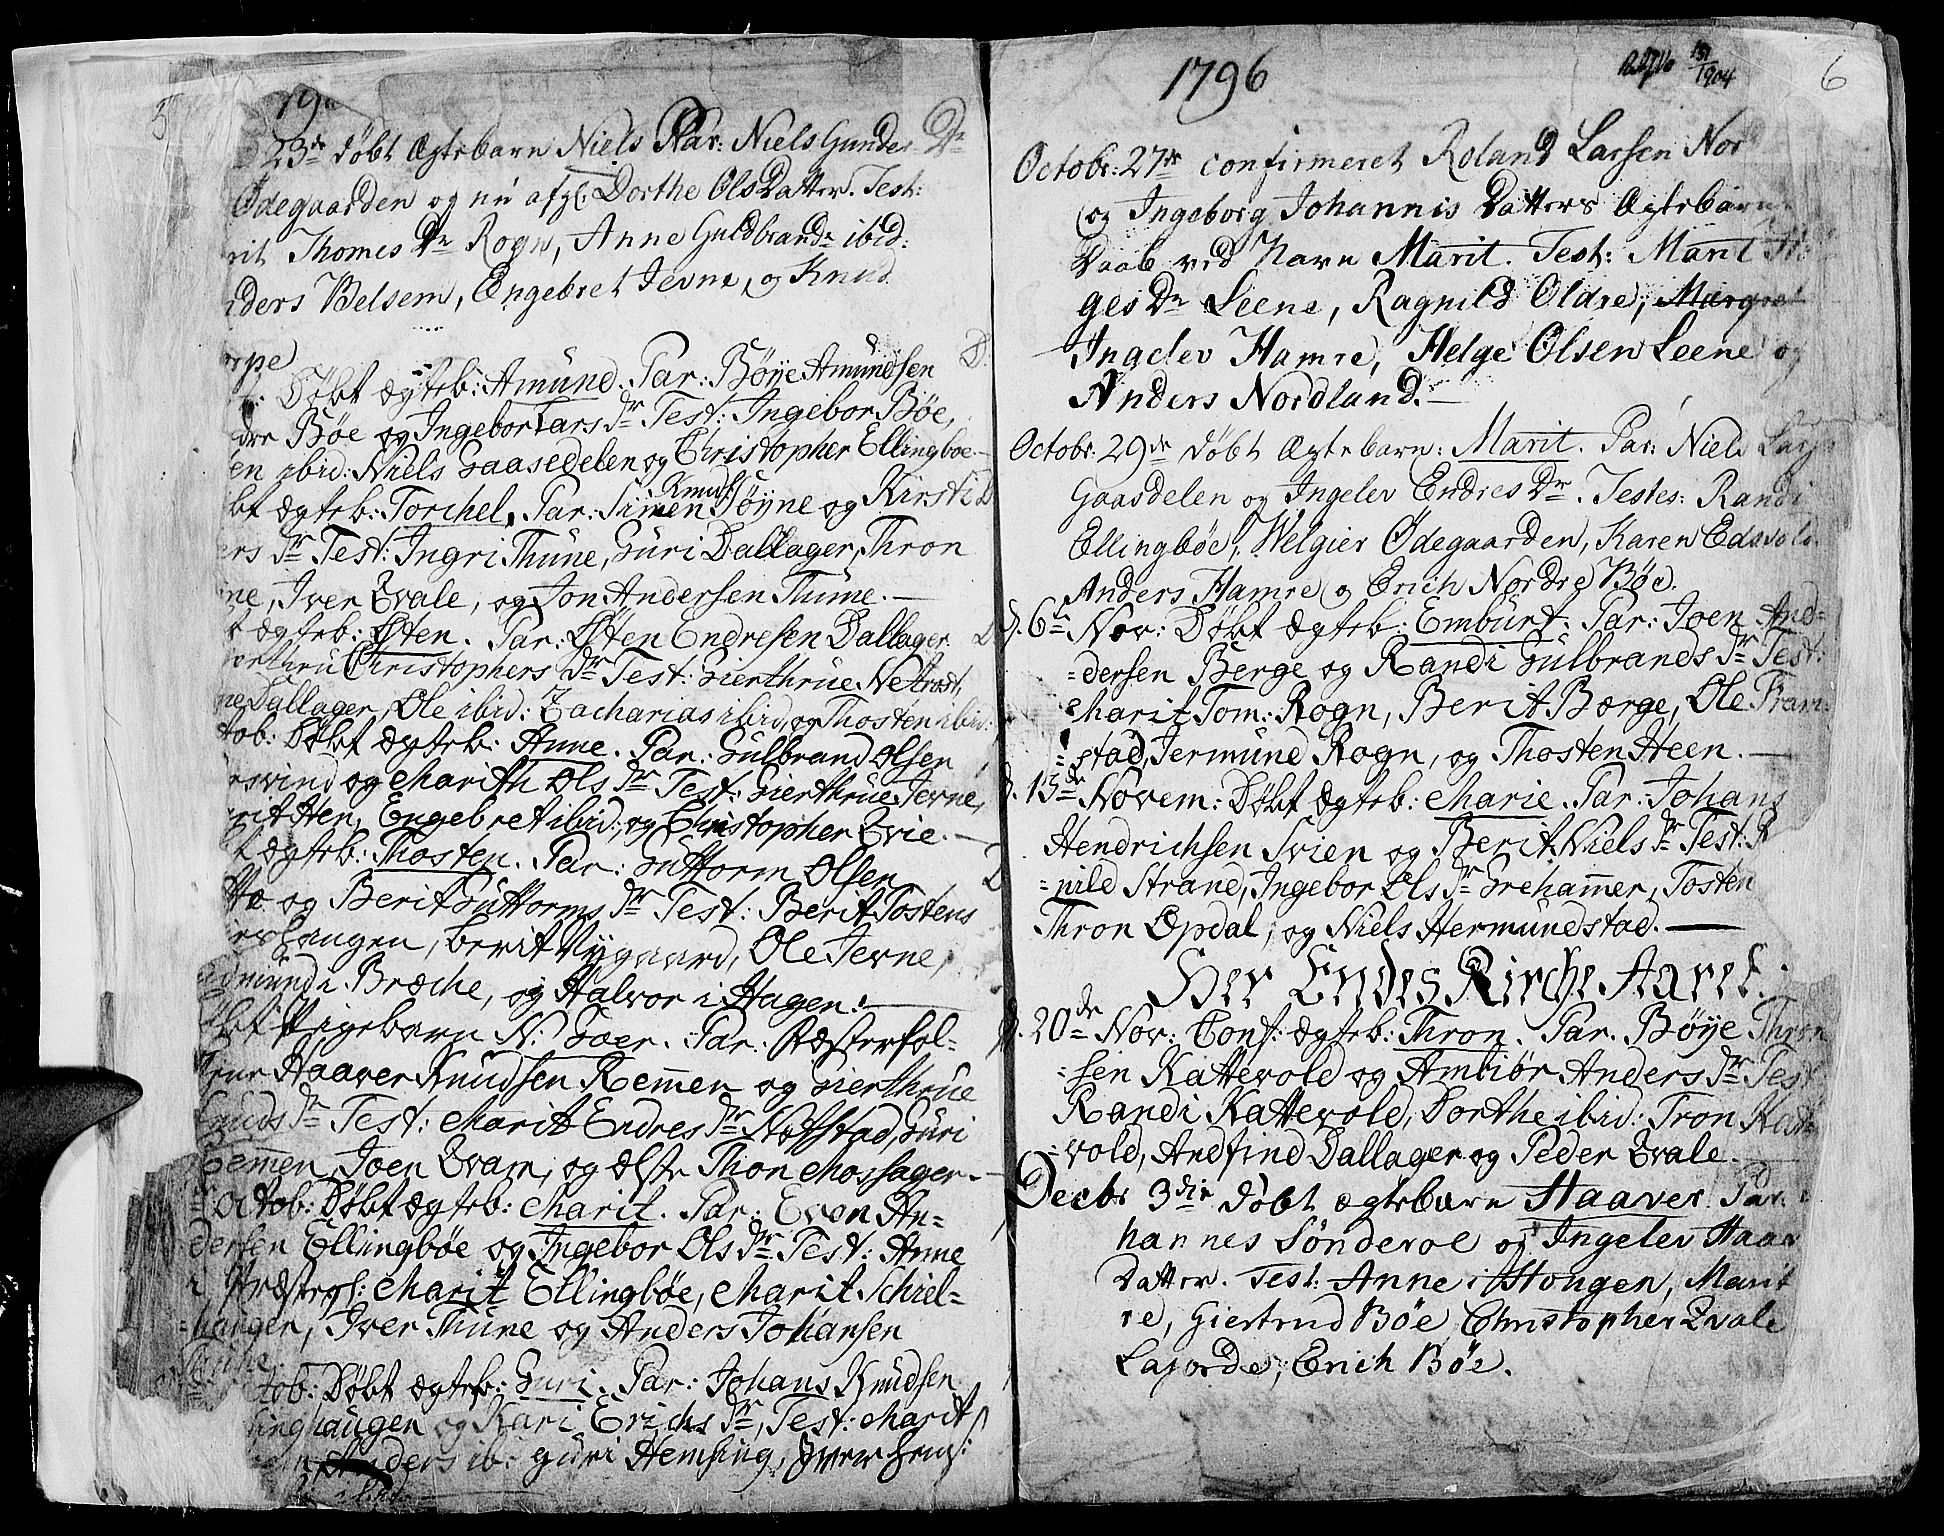 5
23de døbt Ægtebarn Niels Par: Niels Gunders Dr
Ødegaarden og nu afgl: Dorthe OlsDatter. Test:
rit Thomes Dr Rogn, Anne Guldbrands ibid:
ders Belsem, Engebret Jevne, og Knud
rpe
Døbt ægteb: Amund. Par: Bøye Amundsen
dre Bøe og Ingebor Lars Dr Test: Ingebor Bøe,
en ibid: Niels Gaasedelen og Christopher Ellingboe
bt ægteb: Torchel, Par: Simen Knuds Føyne og Kirsti
ers Dr Test: Ingri Thune, Guri Dallager, Thron
ne, Iver Qvale, og Jon Andersen Thune.
t ægteb: Østen. Par: Østen Endresen Dallager
erthru Christophers Dr Test: Gierthrue Nefstost,
ne Dallager, Ole ibid: Zacharias ibid, og Thosten ibid:
tob: Døbt ægteb: Anne. Par: Gulbrand Olsen
rsvind og Marith Ols Dr Test: Gierthrue Jevne,
rit Hen, Engebret ibid: og Christopher Qvie.
t ægteb: Thosten. Par: Guttorm Olsen
tte og Berit Guttorms Dr Test: Berit Tostens
erhaugen, Berit Nygaard, Ole Jevne,
dmund i Bræche, og Halvor i Hagen.
bt Pigebarn N: Goer. Par: Ægtefol-
Haaver Knudsen Remen og Gierthrue
nuds Dr Test: Marit Endres Dr Noffstad, Guri
Remen, Joen Qvam, og ælste Thron Mossager.
Octob: Døbt ægteb: Marit. Par: Even An-
dersen Ellingbøe og Ingebor Ols Dr Test: Anne
i Præstegl: Marit Ellingbøe, Marit Schiel-
haugen, Iver Thune og Anders Johansen
Thune.
tob: Døbt ægteb: Guri. Par: Johans Knudsen
linghaugen og Kari Erichs Dr, Test: Marit
Anders ib: Guri Hemsing, Iver Hems:
1796
151/1904
6
Octobr: 27de confirmeret Roland Larsen Nor
og Ingeborg Johannis Datters Ægtebarns
Daab ved Navn Marit. Test: Marit Hel
ges Dr Leene, Ragnild Oldre, Margret
Ingelev Hamre, Helge Olsen Leene og
Anders Nordland.
Octobr: 29de døbt Ægtebarn: Marit. Par: Niels Lars
Gaasdelen og Ingelev Endres Dr. Testes: Randi
Ellingbøe, Welgier Ødegaarden, Karen Edsvold.
Anders Hamre og Erich Nordre Bøe.
d. 6te Nov: Døbt ægteb: Emburt. Par: Joen And-
=dersen Berge og Randi Gulbrands Dr Test:
Marit Tom: Rogn, Berit Borge, Ole Fram
=stad, Jermund Rogn, og Thosten Heen.
d. 13de Novem: Døbt ægteb: Marie. Par: Johans
Hendrichsen Svien og Berit Niels Dr Test: R
=nild Strand, Ingebor Ols Dr Grehamer, Tosten
Thron Opdal, og Niels Hermundstad.
Her Endes Kirche Aaret.
d. 20de Nov: Conf: ægteb: Thron. Par. Bøye Thron
=sen Kattevold og Ambiør Anders Dr Test
Randi Kattevold, Dorthe ibid: Tron Kat
=vold, Andfind Dallager og Peder Qvale.
Decbr 3die døbt ægtebarn Haaver. Par.
hannes Sønderoe og Ingelev Haav
Datter. Test. Anne i Stongen, Marit
re, Giertrud Bøe Christopher Qvale
Lajorde, Erich Bøe.